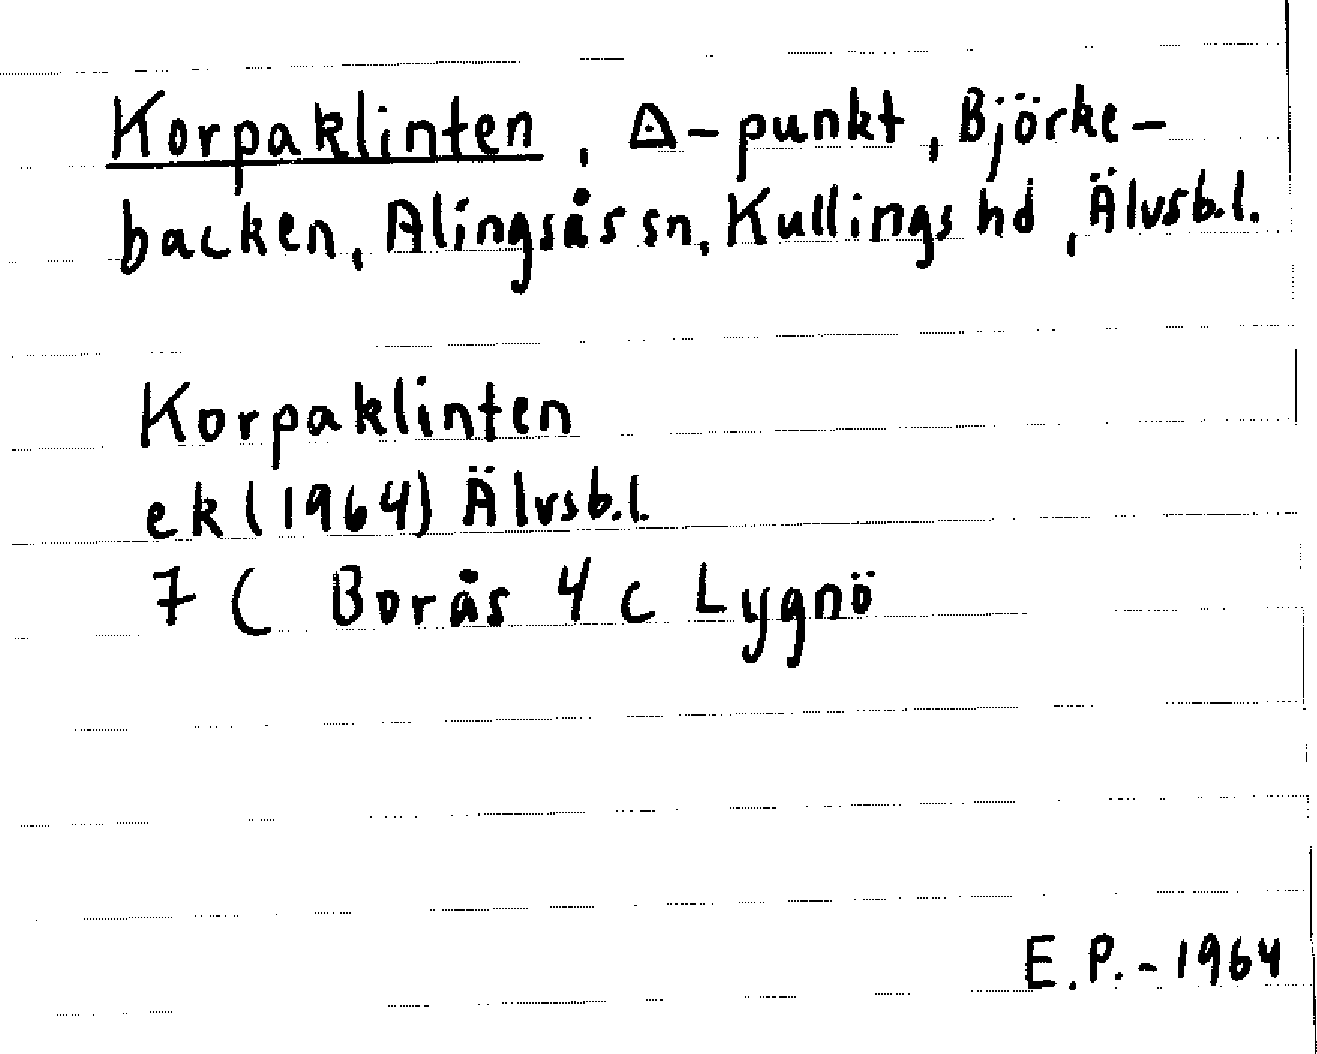 Korpaklinten, ◬-punkt, Björke-
backen, Alingsås sn, Kullings hd, Älvsb.l.
Korpaklinten
ek (1964) Älvsb.l.
7 C Borås 4 c Lygnö
E.P.-1964